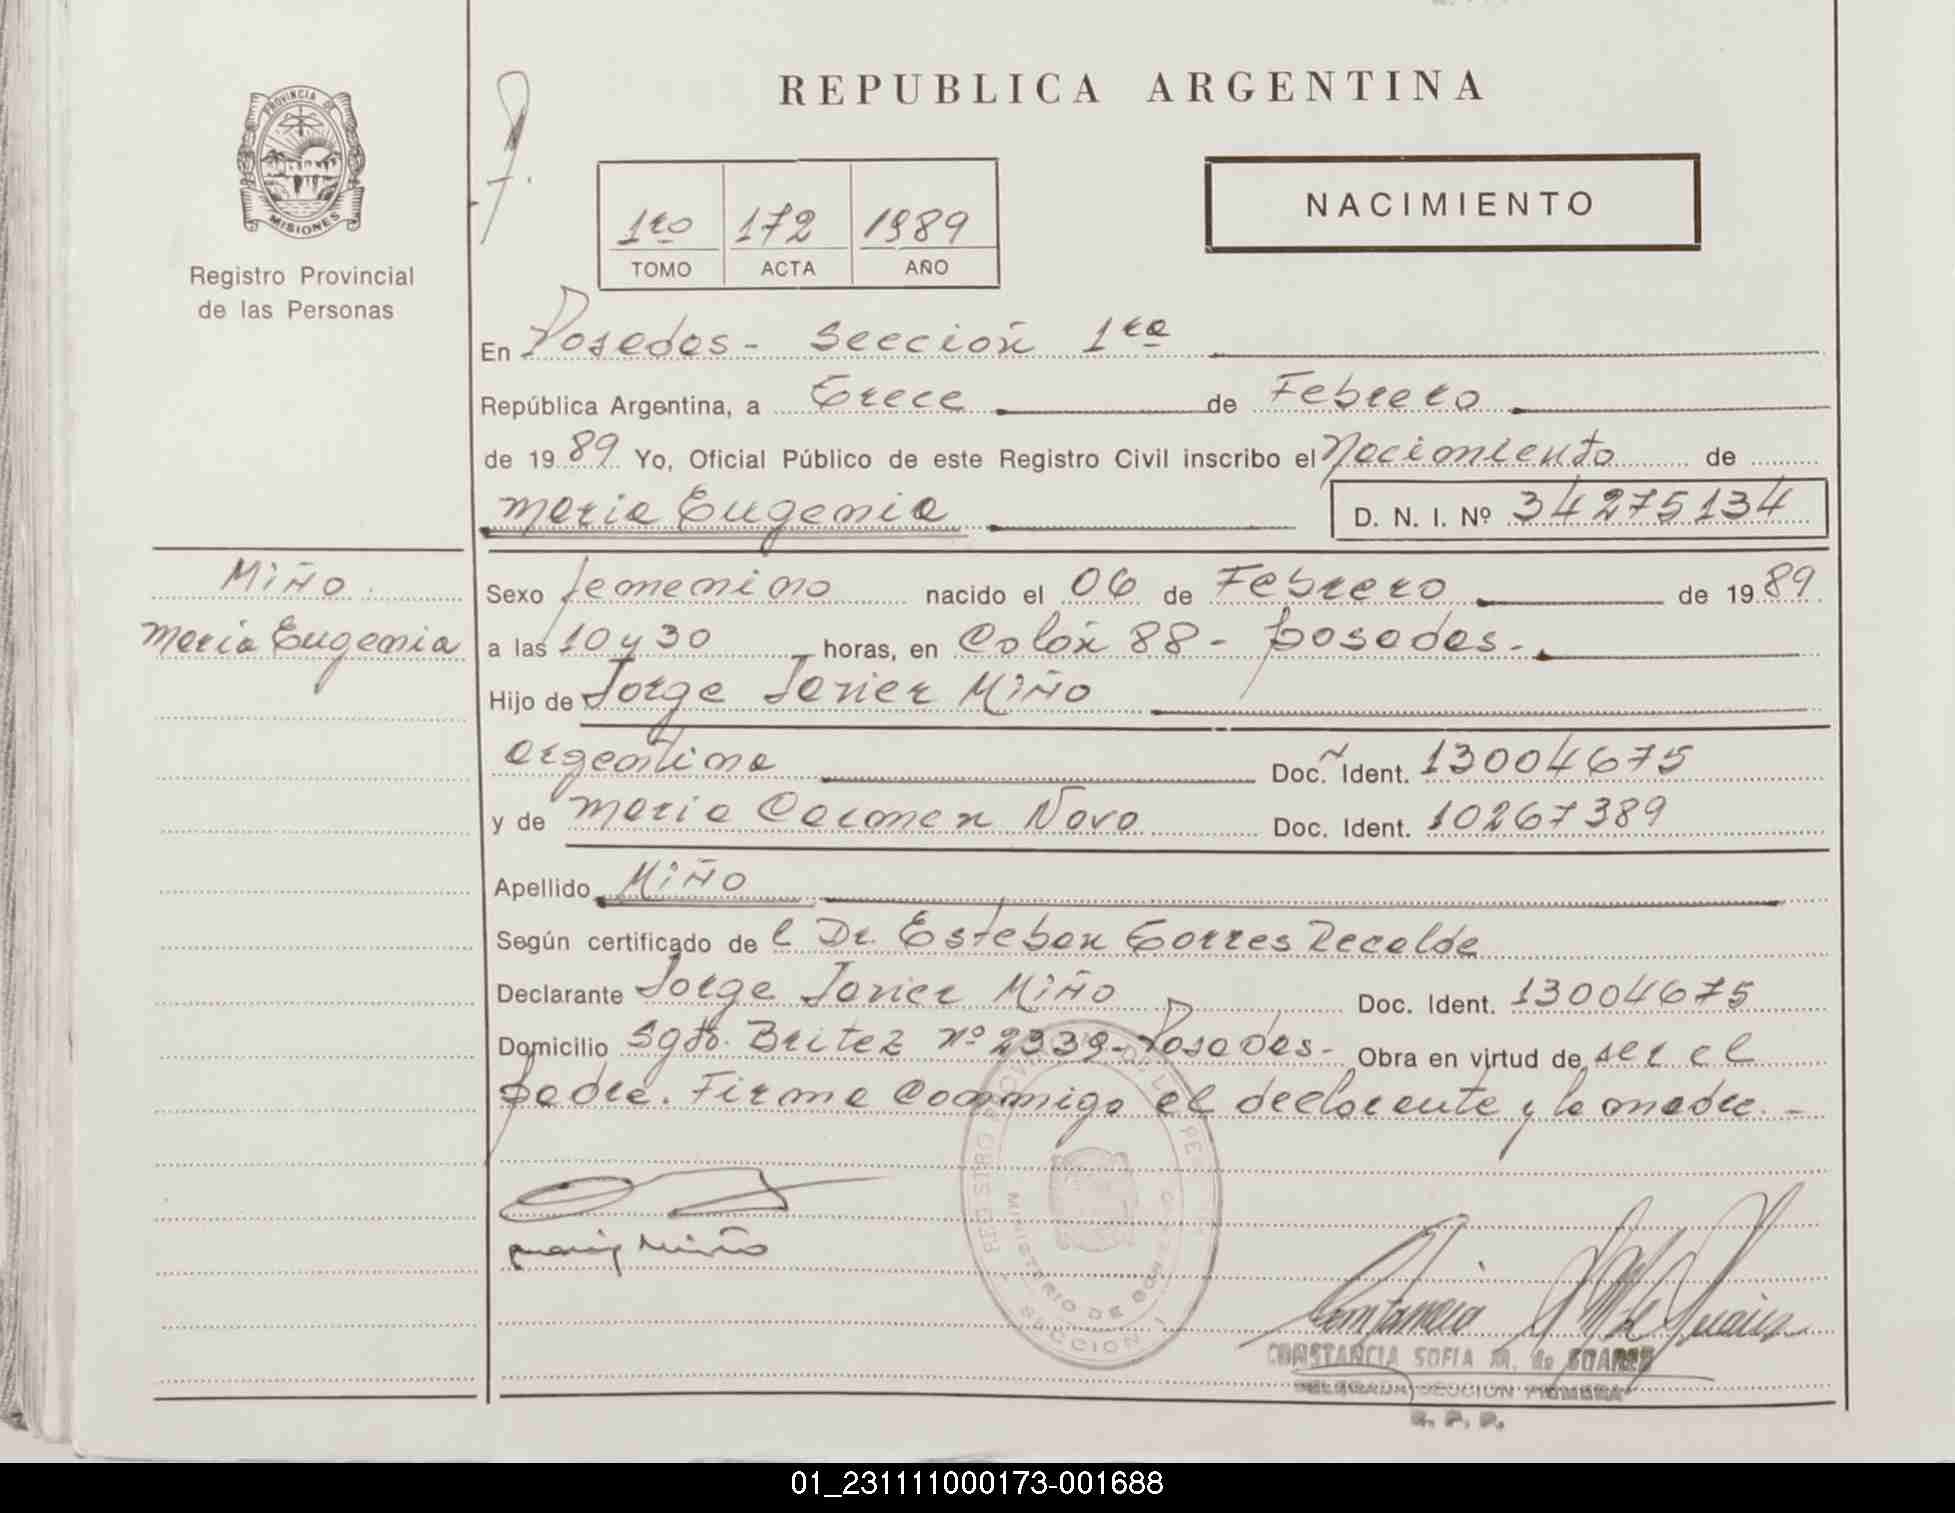 REPUBLICA ARGENTINA
PROVINCIA DE MISIONES
Registro Provincial
de las Personas
NACIMIENTO
1ro 172 1989
TOMO ACTA AÑO
En Posadas - Sección 1ra
República Argentina, a Trece de Febrero
de 1989 Yo, Oficial Público de este Registro Civil inscribo el Nacimiento de
Maria Eugenia D. N. I. Nº 34275134
Miño
Maria Eugenia
Sexo femenino nacido el 06 de Febrero de 1989
a las 10 y 30 horas, en Colón 88 - Posadas -
Hijo de Jorge Javier Miño
argentina Doc. Ident. 13004675
y de Maria Carmen Novo Doc. Ident. 10267389
Apellido Miño
Según certificado de l Dr. Esteban Torres Recalde
Declarante Jorge Javier Miño Doc. Ident. 13004675
Domicilio Sgto. Britez Nº 2339 - Posadas - Obra en virtud de ser el
padre. Firma Conmigo el declarante y la madre. -
REGISTRO PROVINCIAL DE LAS PERSONAS
MINISTERIO DE GOBIERNO
SECCION 1
CONSTANCIA SOFIA M. de SUAREZ
DELEGADA SECCION PRIMERA
R. P. P.
01_231111000173-001688